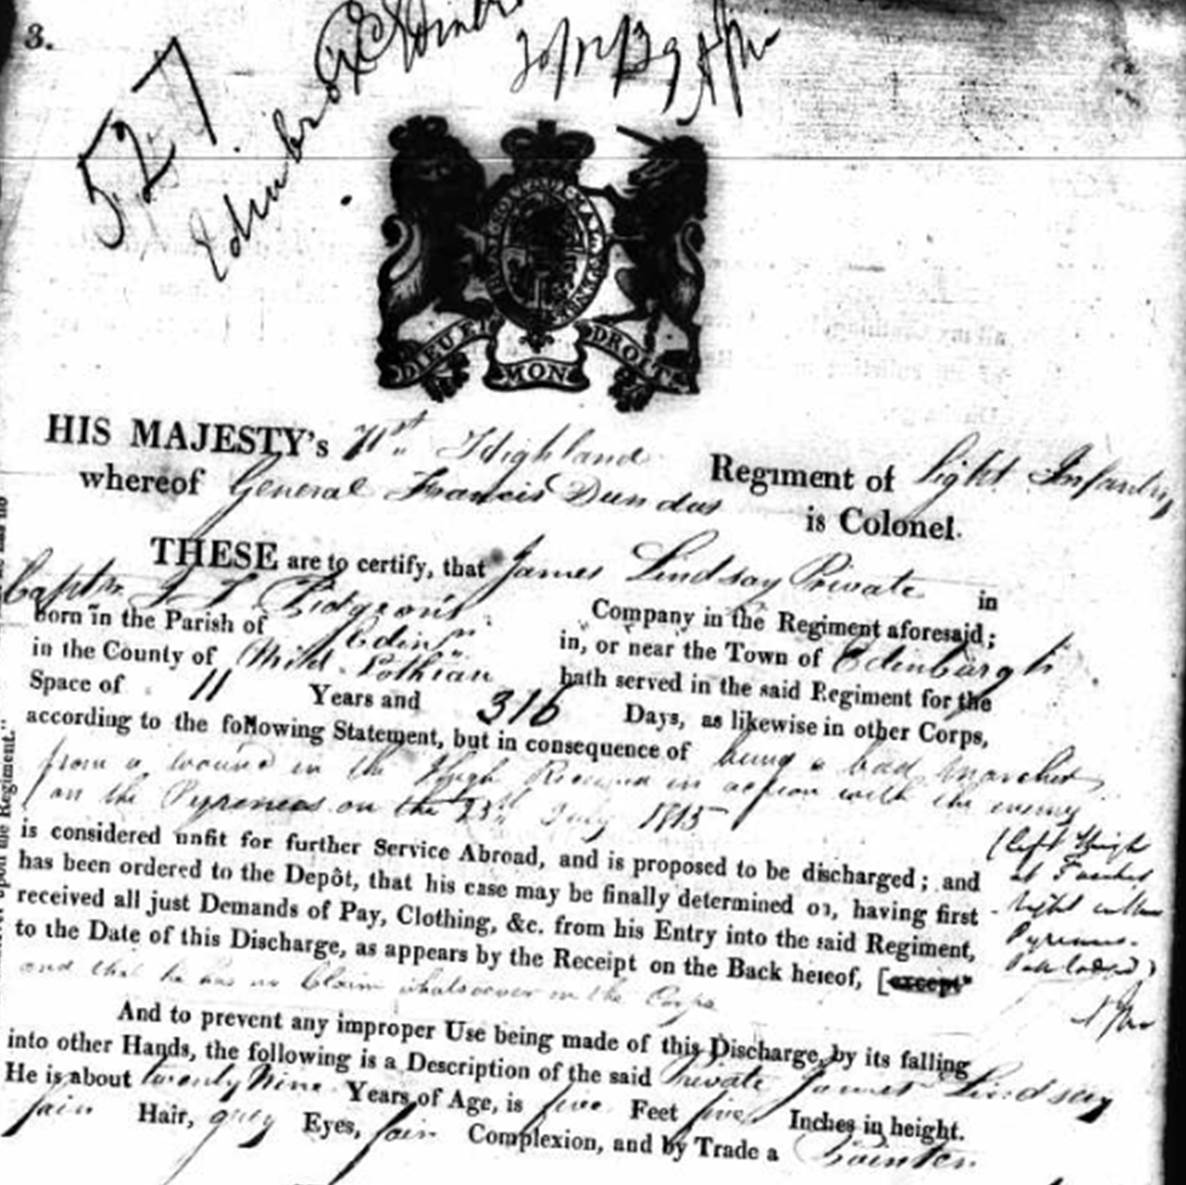 3.
527
Edinbro
DIEU ET MON DROIT
HIS MAJESTY's 71st Highland Regiment of Light Infantry
whereof General Francis Dundas is Colonel.
THESE are to certify, that James Lindsay Private in
Captn Company in the Regiment aforesaid;
born in the Parish of Edinr in, or near the Town of Edinburgh
in the County of Mid Lothian hath served in the said Regiment for the
Space of 11 Years and 316 Days, as likewise in other Corps,
according to the following Statement, but in consequence of being a bad marcher
from a wound in the thigh Received in action with the enemy
on the Pyrenees on the July
is considered unfit for further Service Abroad, and is proposed to be discharged; and
has been ordered to the Depôt, that his case may be finally determined on, having first
received all just Demands of Pay, Clothing, &c. from his Entry into the said Regiment,
to the Date of this Discharge, as appears by the Receipt on the Back hereof, [except
and that he has no Claim whatsoever on the Corps
(left thigh
at
right
Pyrenees.
And to prevent any improper Use being made of this Discharge, by its falling
into other Hands, the following is a Description of the said Private James Lindsay
He is about twenty Nine Years of Age, is five Feet five Inches in height.
fair Hair, grey Eyes, fair Complexion, and by Trade a Painter
upon the Regiment."